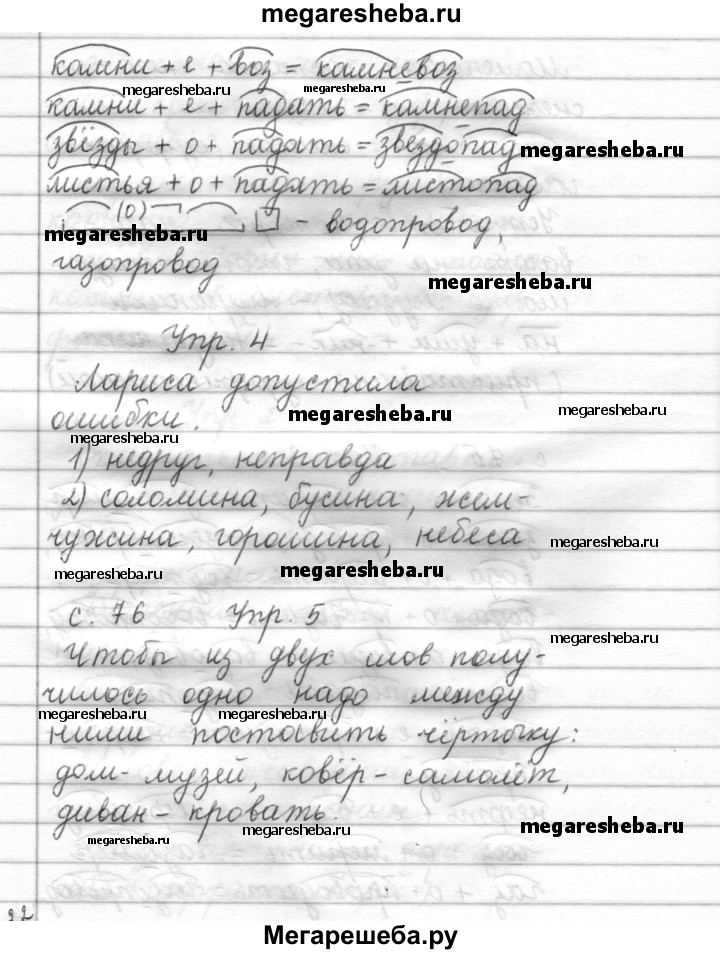 megaresheba.ru
камни + е + воз = камневоз
megaresheba.ru megaresheba.ru
камни + е + падать = камнепад
звёзды + о + падать = звездопад
megaresheba.ru
листья + о + падать = листопад
(о) - водопровод,
megaresheba.ru
газопровод
megaresheba.ru
Упр. 4
Лариса допустила
ошибки.
megaresheba.ru megaresheba.ru
megaresheba.ru
1) недруг, неправда
2) соломина, бусина, жем-
чужина, горошина, небеса
megaresheba.ru
megaresheba.ru megaresheba.ru
с. 76 Упр. 5
megaresheba.ru
Чтобы из двух слов полу-
чилось одно надо между
megaresheba.ru megaresheba.ru
ними поставить чёрточку:
дом- музей, ковёр - самолёт,
диван - кровать.
megaresheba.ru megaresheba.ru megaresheba.ru
22
Мегарешеба.ру